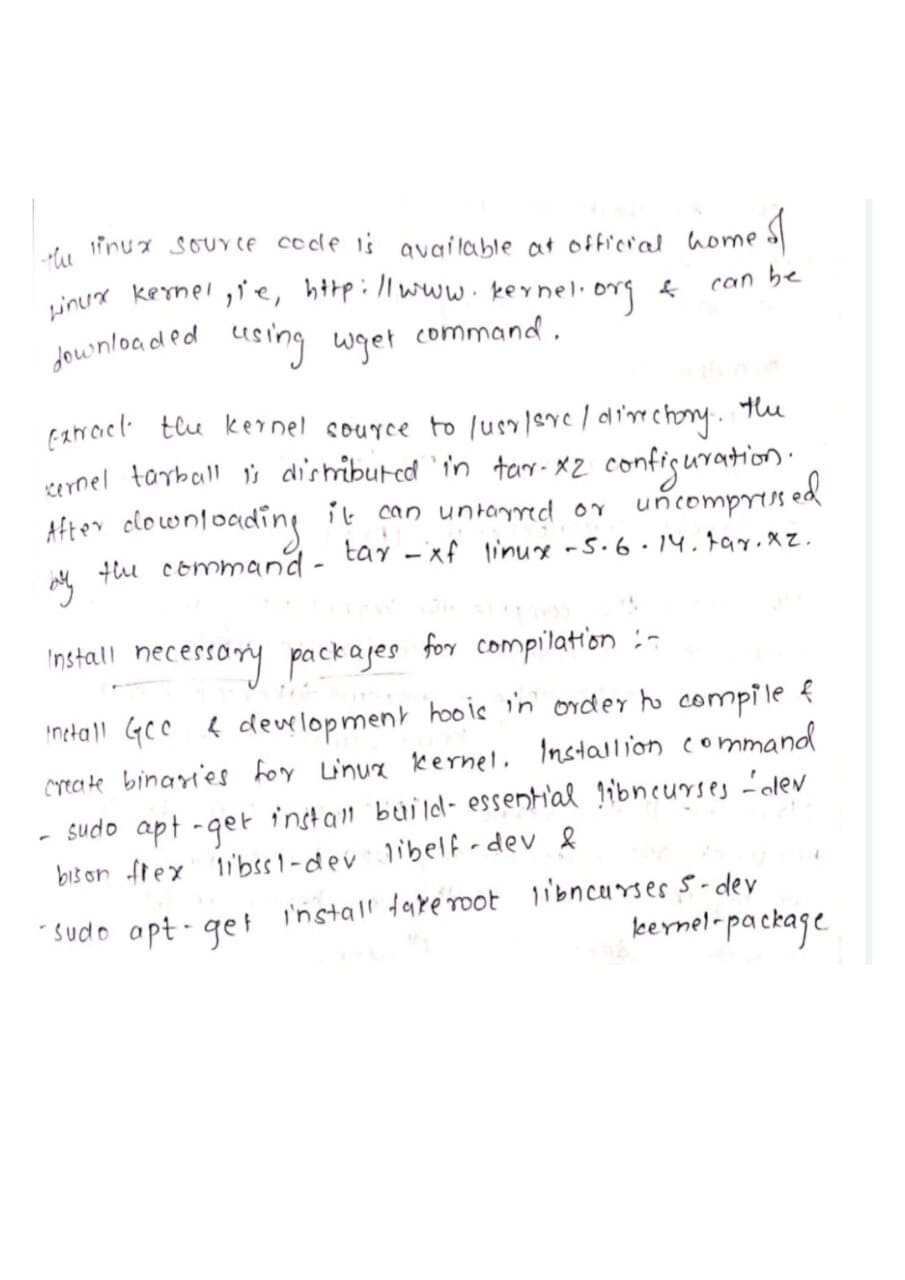 the linux source code is available at official home of
Linux kernel, i.e, http://www.kernel.org & can be
downloaded using wget command.
Extract the kernel source to /usr/src/directory. The
kernel tarball is distributed in tar-xz configuration.
After downloading it can untarred or uncompressed
by the command - tar -xf linux-5.6.14.tar.xz.
Install necessary packages for compilation :-
Install GCC & development tools in order to compile &
create binaries for Linux kernel. Installion command
- sudo apt-get install build-essential libncurses-dev
bison flex libssl-dev libelf-dev &
- sudo apt-get install fakeroot libncurses5-dev
kernel-package